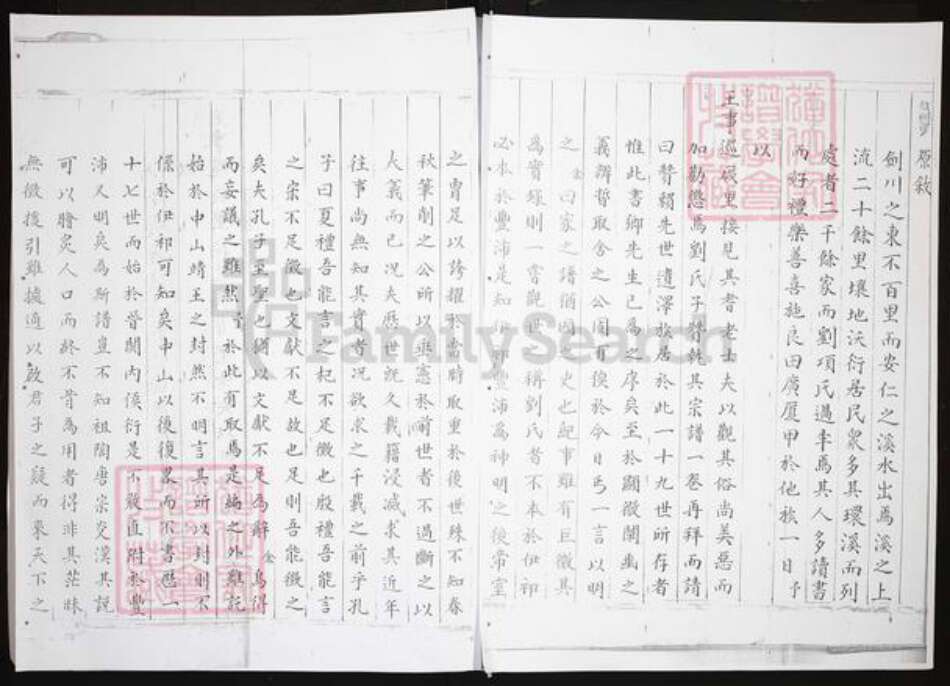 原敘
劍川之東不百里而安仁之溪水出焉溪之上
流二十餘里壤地沃衍居民眾多其環溪而列
處者二千餘家而劉項氏過半焉其人多讀書
而好禮樂善善施良田廣廈甲於他族一日予
以
王事巡礙里接見其耆老士夫以觀其俗尚美惡而
加勸懲焉劉氏子 執其宗譜一卷再拜而請
曰贊賴先世遺澤族居於此一十九世所存者
惟此書卿先生已為之序矣至於顯微闡幽之
義辨晢取舍之公固有俟於今日丐一言以明
之 曰家之譜猶國之史也紀事雖有巨微其
為實錄則一嘗觀世稱劉氏者不本於伊祁
必本於豐沛是知伊祁豐沛為神明之後帝室
之胄足以誇耀於當時取重於後世殊不知春
秋筆削之公所以垂憲於前世者不過斷之以
大義而已況夫歷世既久載籍浸滅求其近年
往事尚無知其實者況欲求之千載之前乎孔
子曰夏禮吾能言之杞不足徵也殷禮吾能言
之宋不足徵也文獻不足故也足則吾能徵之
矣夫孔子至聖也猶以文獻不足為辭 烏得
而妄議之雖然予於此有取焉是編之外雖託
始於中山靖王之封然不明言其所以封則不
係於伊祁可知矣中山以後復畧而不書歷一
十七世而始於晉關內侯衍是不敢直附於豐
沛又明矣為斯譜豈不知祖陶唐宗炎漢其說
可以膾炙人口而終不肯為用者得非其茫昧
無徵援引難據適以啟君子之疑而來天下之
FamilySearch